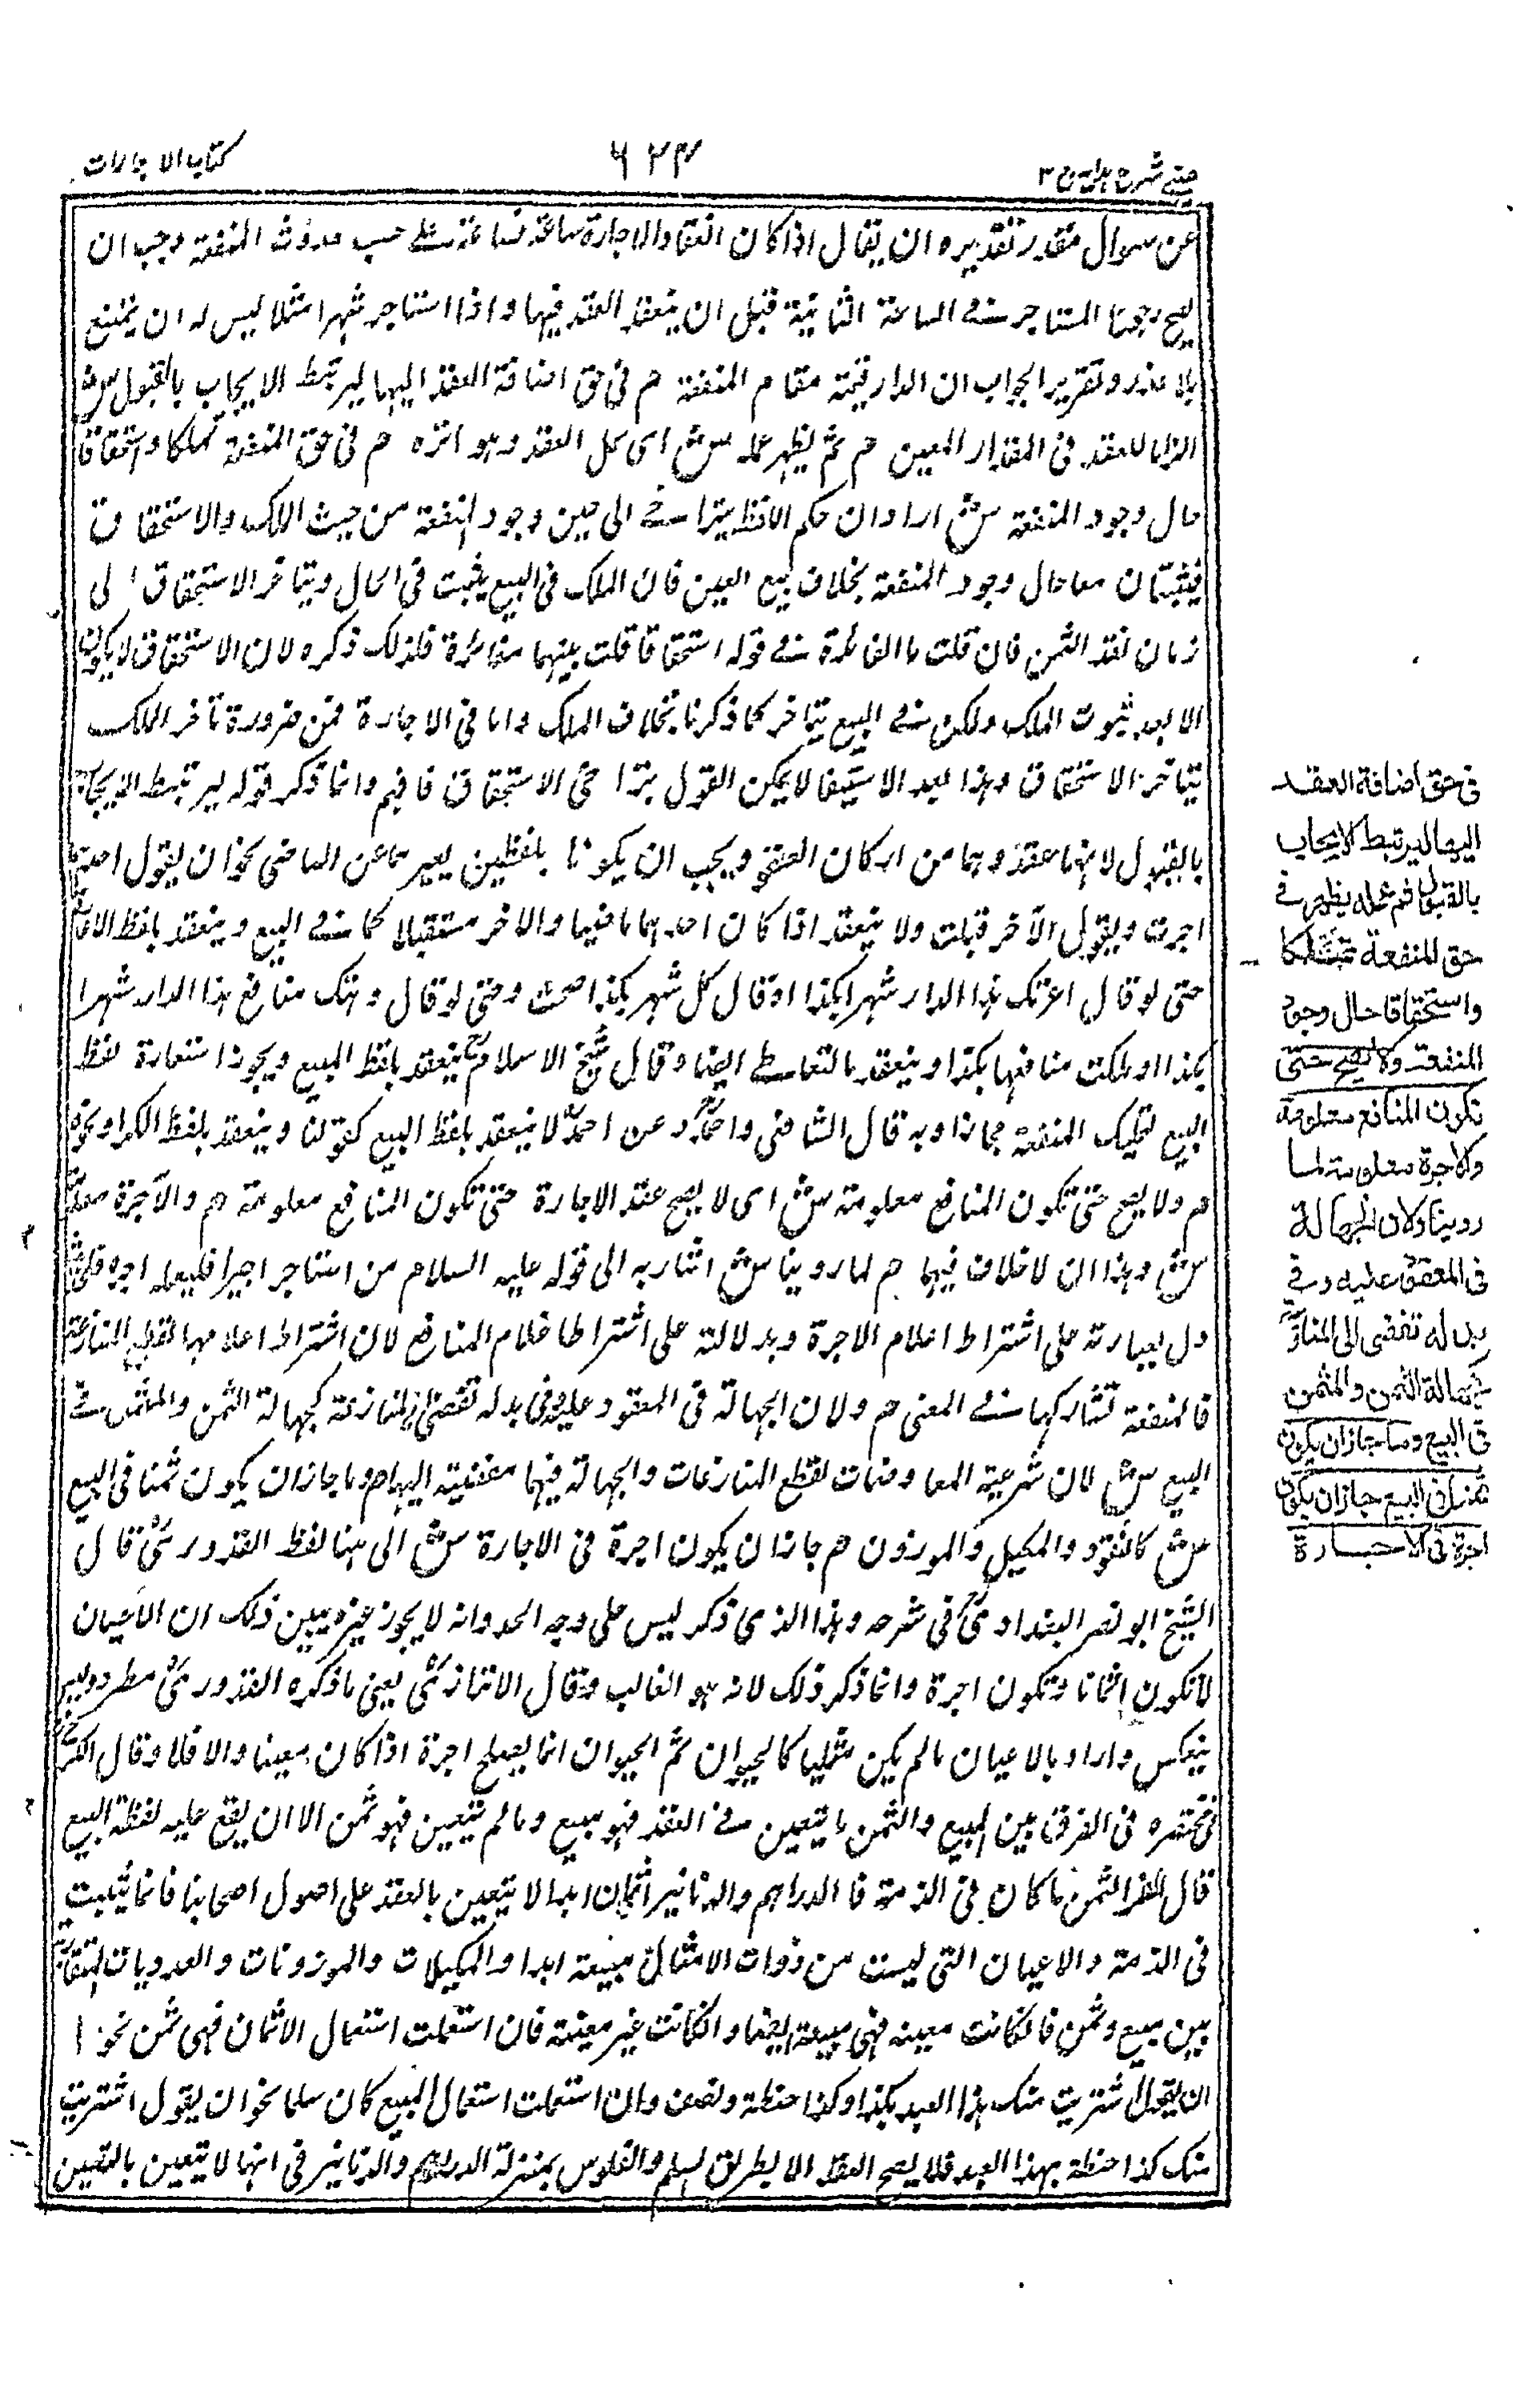 عینی شرح ہدایہ ج ۳
۶۲۳
كتاب الاجارات
عن سوال مقدر تقديره ان يقال اذا كان انعقاد الاجارة ساعة فساعة على حسب حدوث المنفعة وجب ان
يصح رجوع المستاجر فى الساعة الثانية قبل ان ينعقد العقد فيها واذا استاجر شهرا مثلا ليس له ان يمتنع
بلا عذر وتقرير الجواب ان الدار قيمة مقام المنفعة م فى حق اضافة العقد اليها ليرتبط الايجاب بالقبول ش
الزاما للعقد فى المقدار المعين م ثم يظهر عمله ش اى عمل العقد وهو اثره م فى حق المنفعة تملكا واستحقاقا
حال وجود المنفعة ش اراد ان حكم اللفظ يتراخى الى حين وجود المنفعة من حيث الملك والاستحقاق
فيثبتان معا حال وجود المنفعة بخلاف بيع العين فان الملك فى البيع يثبت فى الحال ويتاخر الاستحقاق الى
زمان نقد الثمن فان قلت ما الفائدة فى قوله استحقاقا قلت بينهما مغايرة فلذلك ذكره لان الاستحقاق لا يكون
الا بعد ثبوت الملك ولكن فى البيع يتاخر كما ذكرنا بخلاف الملك واما فى الاجارة فمن ضرورة تاخر الملك
يتاخر الاستحقاق وهذا بعد الاستيفا لا يمكن القول بتراخى الاستحقاق فافهم وانما ذكر قوله ليرتبط الايجاب
بالقبول لانهما عقد وهما من اركان العقد ويجب ان يكونا بلفظين يعبر بهما عن الماضى نحو ان يقول احدهما
اجرت ويقول الآخر قبلت ولا ينعقد اذا كان احدهما ماضيا والاخر مستقبلا كما فى البيع وينعقد بلفظ الاعارة
حتى لو قال اعرتك هذا الدار شهرا بكذا او قال كل شهر بكذا صحت وحتى لو قال وهبتك منافع هذا الدار شهرا
بكذا او ملكت منافعها بكذا وينعقد بالتعاطى ايضا وقال شيخ الاسلام ينعقد بلفظ البيع ويجوز استعارة لفظ
البيع لتمليك المنفعة مجازا وبه قال الشافعى واحمد وعن احمد لا ينعقد بلفظ البيع كقولنا وينعقد بلفظ الكرا ونحوه
م ولا يصح حتى تكون المنافع معلومة ش اى لا يصح عقد الاجارة حتى تكون المنافع معلومة م والاجرة معلومة
ش وهذا ان لا خلاف فيهما م لما روينا ش اشار به الى قوله عليه السلام من استاجر اجيرا فليعلمه اجره فلئن
دل بعبارته على اشتراط اعلام الاجرة وبدلالته على اشتراط اعلام المنافع لان اشتراط اعلامها لقطع المنازعة
فالمنفعة تشاركها فى المعنى م ولان الجهالة فى المعقود عليه وفى بدله تفضى الى المنازعة كجهالة الثمن والمثمن فى
البيع ش لان شرعية المعاوضات لقطع المنازعات والجهالة فيهما مفضية اليها م وما جاز ان يكون ثمنا فى البيع
ش كالنقود والمكيل والموزون م جاز ان يكون اجرة فى الاجارة ش الى هنا لفظ القدورى قال
الشيخ ابو نصر البغدادى فى شرحه وهذا الذى ذكر ليس على وجه الحد وانه لا يجوز غيره يبين ذلك ان الاعيان
لا تكون اثمانا وتكون اجرة وانما ذكر ذلك لانه هو الغالب وقال الاتقازى يعنى ما ذكره القدورى مطرد وليس
ينعكس واراد بالاعيان ما لم يكن مثليا كالحيوان ثم الحيوان انما يصلح اجرة اذا كان معينا والا فلا وقال الكرخى
فى مختصره فى الفرق بين المبيع والثمن ما يتعين فى العقد فهو مبيع وما لم يتعين فهو ثمن الا ان يقع عليه لفظة البيع
قال الفرا الثمن ما كان فى الذمة فالدراهم والدنانير اثمان ابدا لا يتعين بالعقد على اصول اصحابنا فانما يثبت
فى الذمة والاعيان التى ليست من ذوات الامثال مبيعة ابدا والمكيلات والموزونات والعدديات المتقاربة
بين مبيع وثمن فان كانت معينة فهى مبيعة ايضا وان كانت غير معينة فان استعملت استعمال الاثمان فهى ثمن نحو ا
ان يقول اشتريت منك هذا العبد بكذا وكذا حنطة ونصف وان استعملت استعمال المبيع كان سلما نحو ان يقول اشتريت
منك كذا حنطة بهذا العبد فلا يصح العقد الا بطريق السلم والفلوس بمنزلة الدراهم والدنانير فى انها لا يتعين بالتعيين
فى حق اضافة العقد
اليها ليرتبط الايجاب
بالقبول ثم عمله يظهر فى
حق المنفعة تملكا
واستحقاقا حال وجود
المنفعة ولا يصح حتى
تكون المنافع معلومة
والاجرة معلومة لما
روينا ولان الجهالة
فى المعقود عليه وفى
بدله تفضى الى المنازعة
كجهالة الثمن والمثمن
فى البيع وما جاز ان يكون
ثمنا فى البيع جاز ان يكون
اجرة فى الاجارة